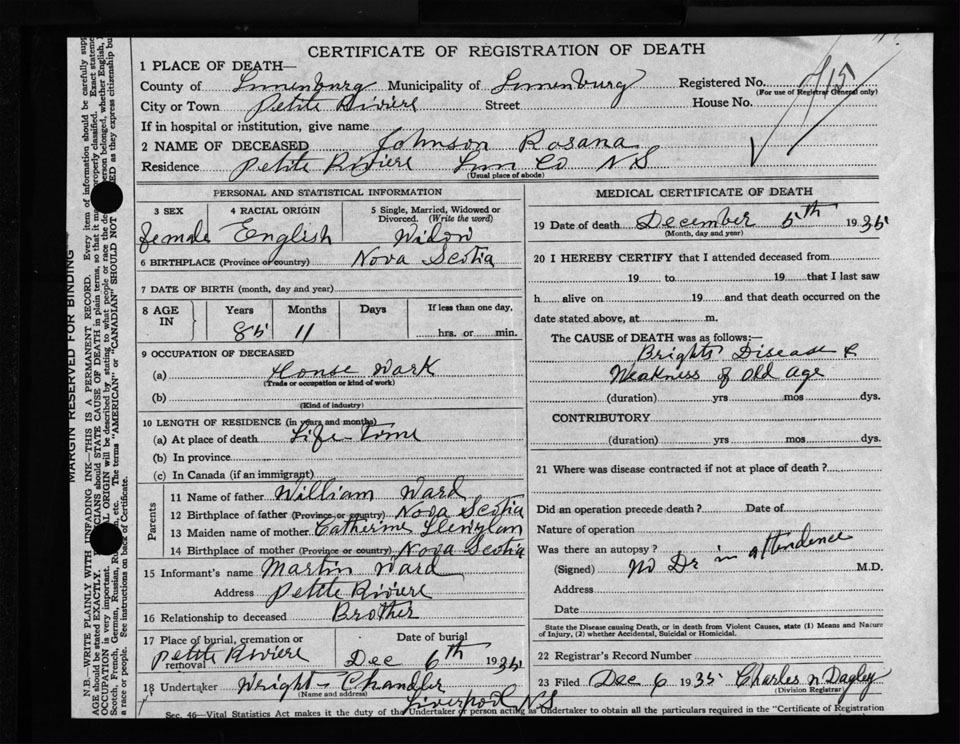 CERTIFICATE OF REGISTRATION OF DEATH
1 PLACE OF DEATH—
County of Lunenburg Municipality of Lunenburg Registered No.
(For use of Registrar General only)
City or Town Petite Riviere Street House No.
If in hospital or institution, give name
2 NAME OF DECEASED Johnson Rosana
Residence Petite Riviere Lun Co N S
(Usual place of abode)
PERSONAL AND STATISTICAL INFORMATION
3 SEX 4 RACIAL ORIGIN 5 Single, Married, Widowed or Divorced. (Write the word)
female English Widow
6 BIRTHPLACE (Province or country) Nova Scotia
7 DATE OF BIRTH (month, day and year)
8 AGE IN Years Months Days If less than one day,
85 11 hrs. or min.
9 OCCUPATION OF DECEASED
(a) House Wark
(Trade or occupation or kind of work)
(b)
(Kind of industry)
10 LENGTH OF RESIDENCE (in years and months)
(a) At place of death Life-Time
(b) In province
(c) In Canada (if an immigrant)
Parents
11 Name of father William Ward
12 Birthplace of father (Province or country) Nova Scotia
13 Maiden name of mother Catherine
14 Birthplace of mother (Province or country) Nova Scotia
15 Informant's name Martin Ward
Address Petite Riviere
16 Relationship to deceased Brother
17 Place of burial, cremation or removal Petite Riviere Date of burial Dec 6th 1935
18 Undertaker Wright-Chandler
(Name and address) Liverpool N S
MEDICAL CERTIFICATE OF DEATH
19 Date of death December 5th 1935
(Month, day and year)
20 I HEREBY CERTIFY that I attended deceased from
19 to 19 that I last saw
h alive on 19 and that death occurred on the
date stated above, at m.
The CAUSE of DEATH was as follows:—
Brights Disease &
Weakness of Old Age
(duration) yrs mos dys.
CONTRIBUTORY
(duration) yrs mos dys.
21 Where was disease contracted if not at place of death?
Did an operation precede death? Date of
Nature of operation
Was there an autopsy?
(Signed) No Dr in attendence M.D.
Address
Date
State the Disease causing Death, or in death from Violent Causes, state (1) Means and Nature
of Injury, (2) whether Accidental, Suicidal or Homicidal.
22 Registrar's Record Number
23 Filed Dec 6 1935 Charles N Dagley
(Division Registrar)
Sec. 46—Vital Statistics Act makes it the duty of the Undertaker or person acting as Undertaker to obtain all the particulars required in the "Certificate of Registration
MARGIN RESERVED FOR BINDING
N.B.—WRITE PLAINLY WITH UNFADING INK—THIS IS A PERMANENT RECORD. Every item of information should be carefully
AGE should be stated EXACTLY. should STATE CAUSE OF DEATH in plain terms, so that it may properly classified. Exact
OCCUPATION is very important. ORIGIN will be described by stating to what people or race the person belonged, whether English,
Scotch, French, German, Russian, etc. The terms "AMERICAN" or "CANADIAN" SHOULD NOT as they express citizenship
a race or people. See instructions on back of Certificate.